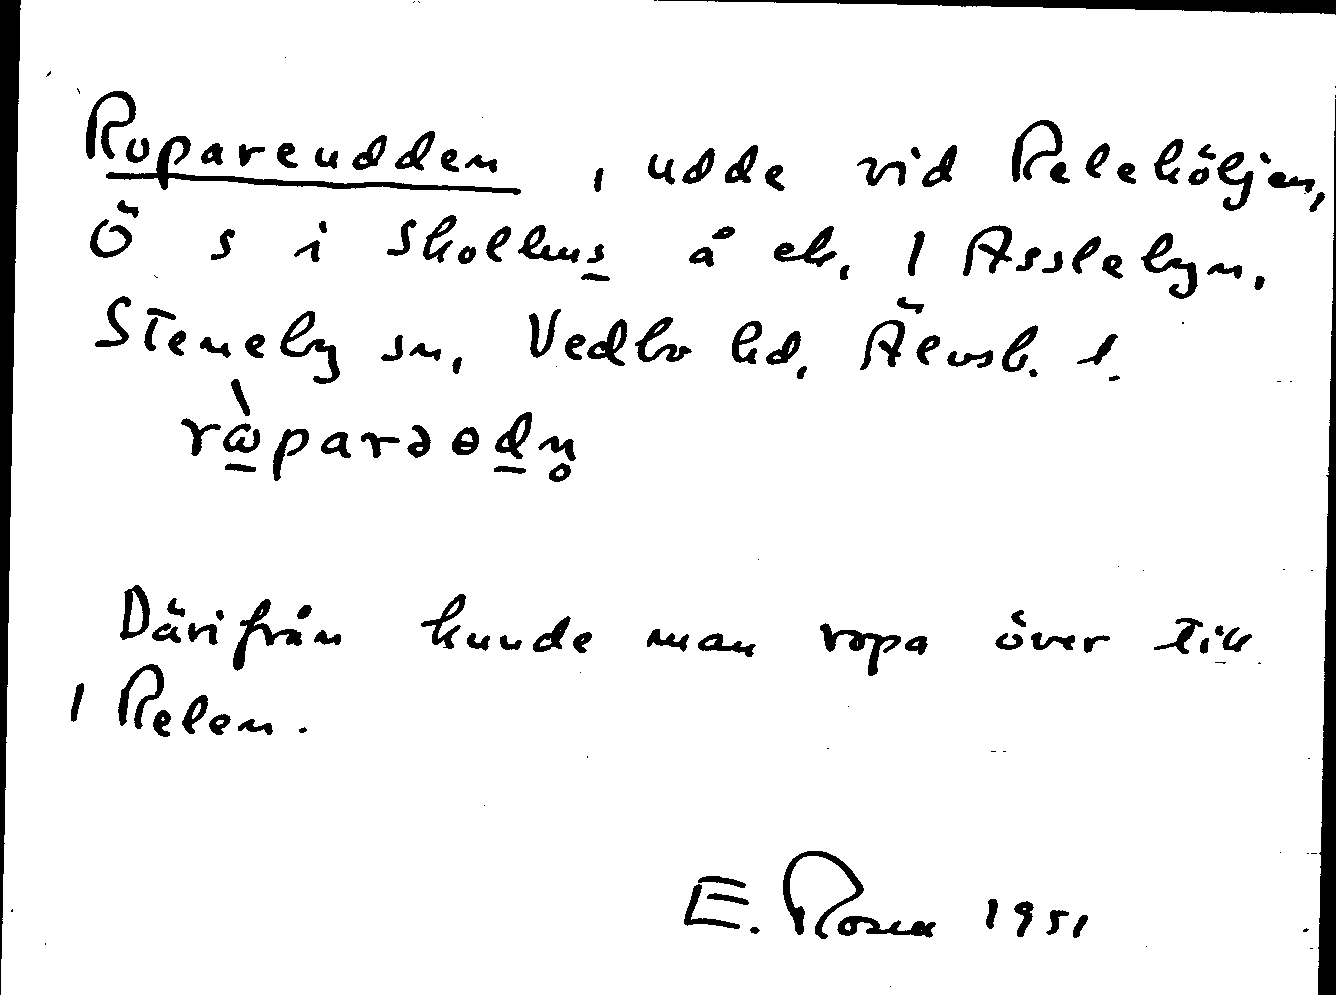 Ropareudden, udde vid Relehöljen,
Ö s i Skollens å ek. 1 Asslebyn,
Steneby sn, Vedbo hd, Älvsb. l.
rὼparəɵdn̥
Därifrån kunde man ropa över till
1 Relen.
E. Rosen 1951